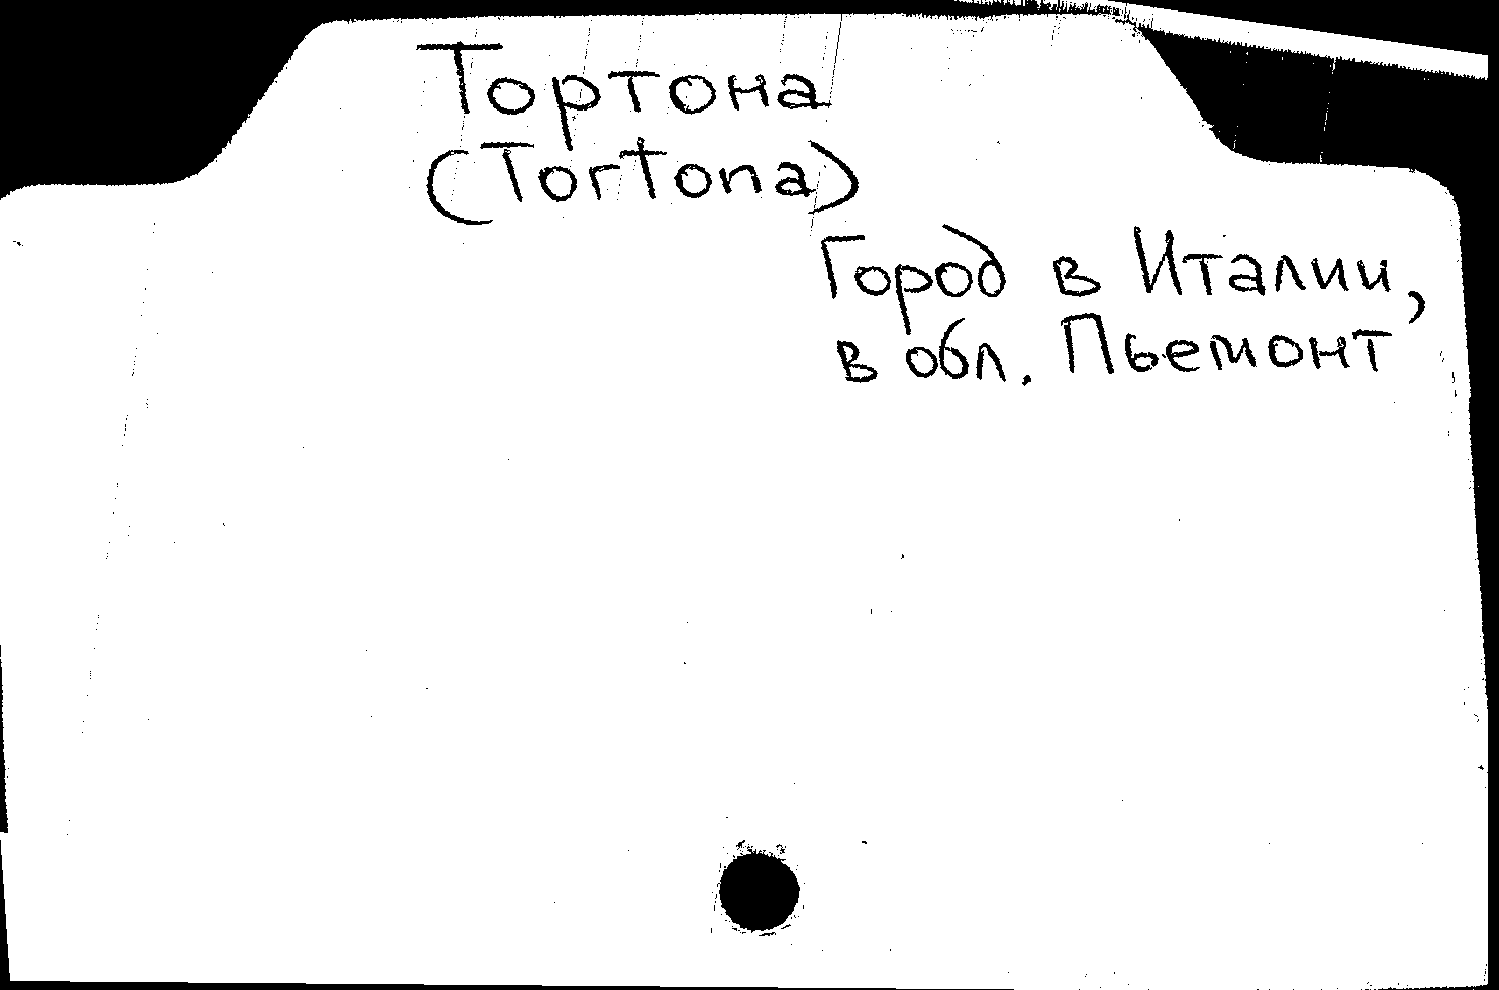 Тортона
(Tortona)
Город в Италии,
в обл. Пьемонт